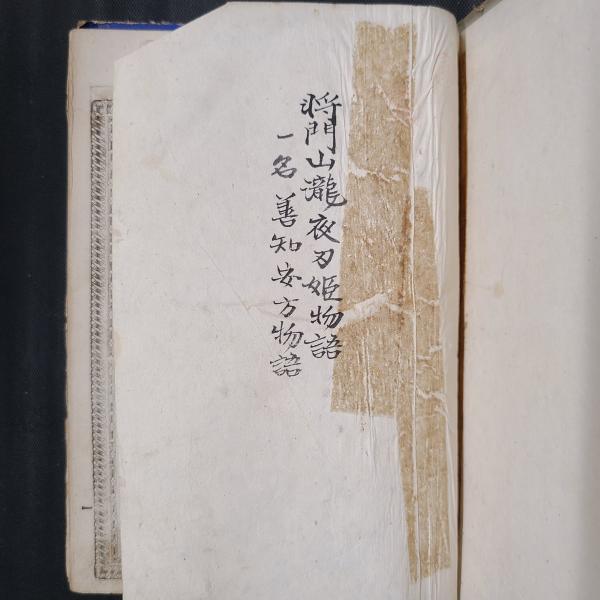 将門山瀧夜刃姫物語
一名善知安方物語